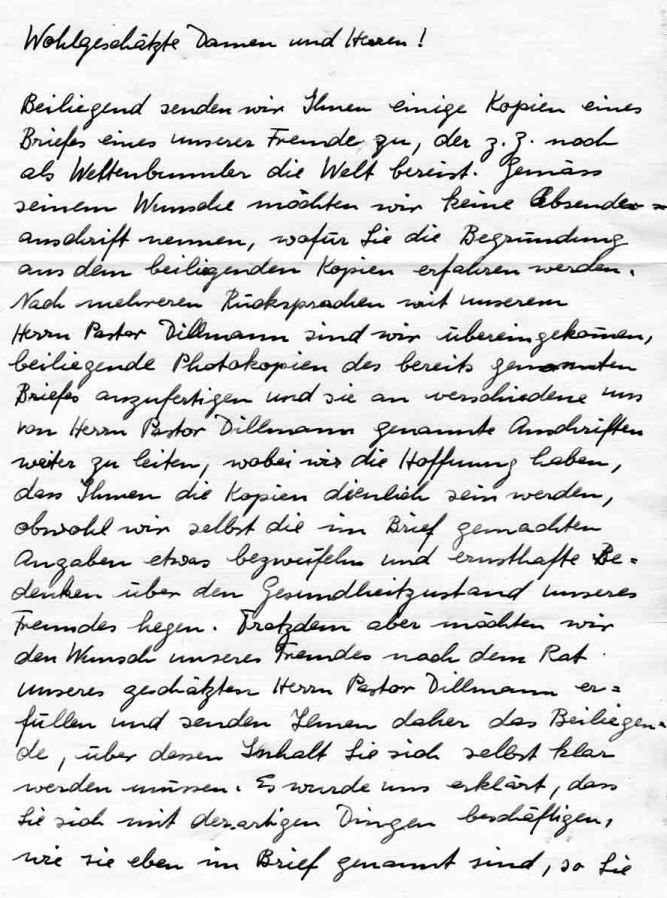 Wohlgeschätzte Damen und Herren!
Beiliegend senden wir Ihnen einige Kopien eines
Briefes eines unserer Freunde zu, der z. Z. noch
als Weltenbummler die Welt bereist. Gemäss
seinem Wunsche möchten wir keine Absender=
anschrift nennen, wofür Sie die Begründung
aus dem beiliegenden Kopien erfahren werden.
Nach mehreren Rücksprachen mit unserem
Herrn Pastor Dillmann sind wir übereingekommen,
beiliegende Photokopien des bereits genannten
Briefes anzufertigen und sie an verschiedene uns
von Herrn Pastor Dillmann genannte Anschriften
weiter zu leiten, wobei wir die Hoffnung haben,
dass Ihnen die Kopien dienlich sein werden,
obwohl wir selbst die im Brief gemachten
Angaben etwas bezweifeln und ernsthafte Be=
denken über den Gesundheitzustand unseres
Freundes hegen. Trotzdem aber möchten wir
den Wunsch unseres Freundes nach dem Rat
unseres geschätzten Herrn Pastor Dillmann er=
füllen und senden Ihnen daher das Beiliegen=
de, über dessen Inhalt Sie sich selbst klar
werden müssen. Es wurde uns erklärt, dass
Sie sich mit derartigen Dingen beschäftigen,
wie sie eben im Brief genannt sind, so Sie